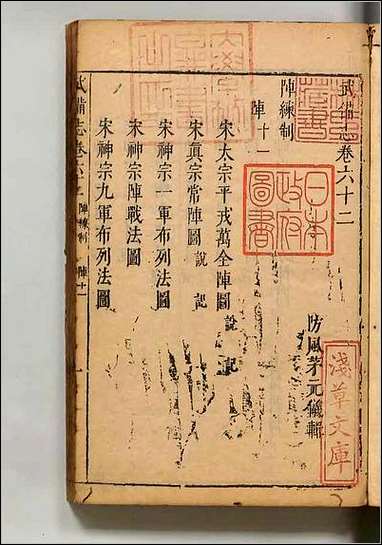 武備志卷六十二
防風茅元儀輯
陣練制
陣十一
宋太宗平戎萬全陣圖 說 記
宋真宗常陣圖 說 記
宋神宗一軍布列法圖
宋神宗陣戰法圖
宋神宗九軍布列法圖
武備志卷六十二 陣練制 陣十一 一
日本政府圖書
淺草文庫